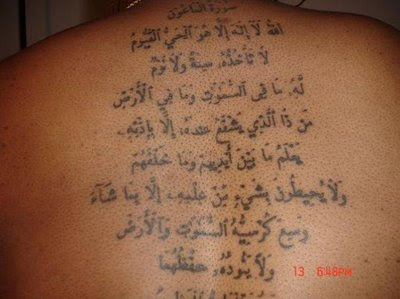 سورة الماعون
الله لا إله إلا هو الحي القيوم
لا تأخذه سنة ولا نوم
له ما في السموت وما في الأرض
من ذا الذي يشفع عنده إلا بإذنه
يعلم ما بين أيديهم وما خلفهم
ولا يحيطون بشيء من علمه إلا بما شاء
وسع كرسيه السموت والأرض
ولا يوده حفظهما
13 6:48PM